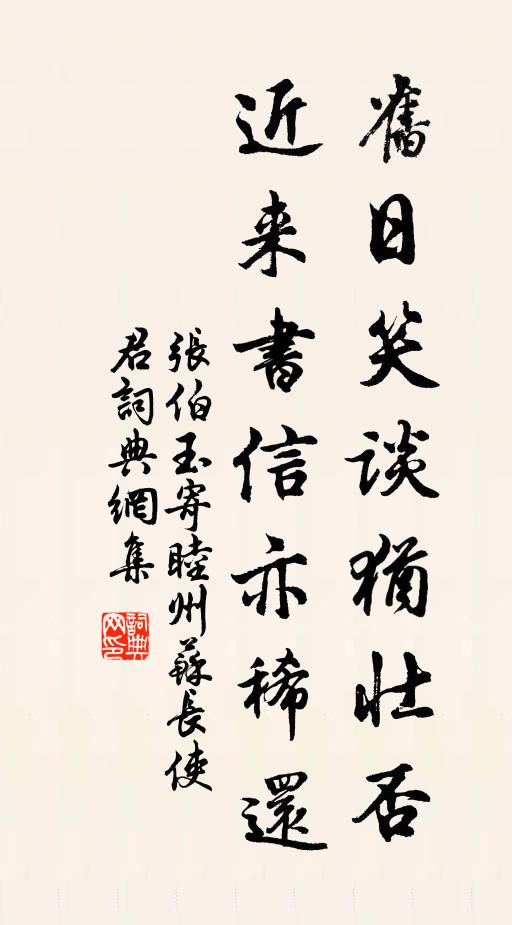 舊日笑談猶壯否
近来書信亦稀還
張伯玉寄睦州蘇長使
君詞典網集
詞典网印